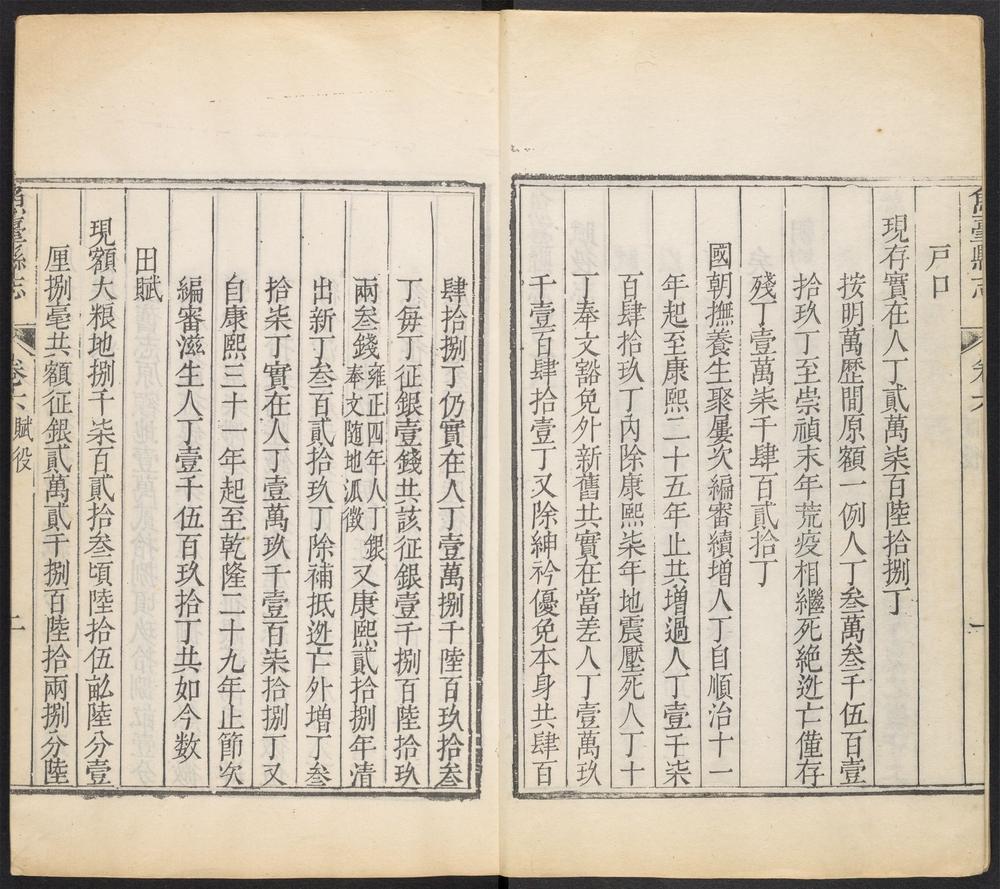 魚臺縣志
卷六
一
戸口
現存實在人丁貳萬柒百陸拾捌丁
按明萬歷間原額一例人丁叁萬叁千伍百壹
拾玖丁至崇禎末年荒疫相繼死絶迯亡僅存
殘丁壹萬柒千肆百貳拾丁
國朝撫養生聚屢次編審續增人丁自順治十一
年起至康熙二十五年止共增過人丁壹千柒
百肆拾玖丁內除康熙柒年地震壓死人丁十
丁奉文豁免外新舊共實在當差人丁壹萬玖
千壹百肆拾壹丁又除紳衿優免本身共肆百
肆拾捌丁仍實在人丁壹萬捌千陸百玖拾叁
丁每丁征銀壹錢共該征銀壹千捌百陸拾玖
兩叁錢雍正四年人丁銀奉文随地派徵又康熙貳拾捌年清
出新丁叁百貳拾玖丁除補抵迯亡外增丁叁
拾柒丁實在人丁壹萬玖千壹百柒拾捌丁又
自康熙三十一年起至乾隆二十九年止節次
編審滋生人丁壹千伍百玖拾丁共如今数
田賦
現額大粮地捌千柒百貳拾叁頃陸拾伍畆陸分壹
厘捌毫共額征銀貳萬貳千捌百陸拾兩捌分陸
魚臺縣志
卷六賦役
二